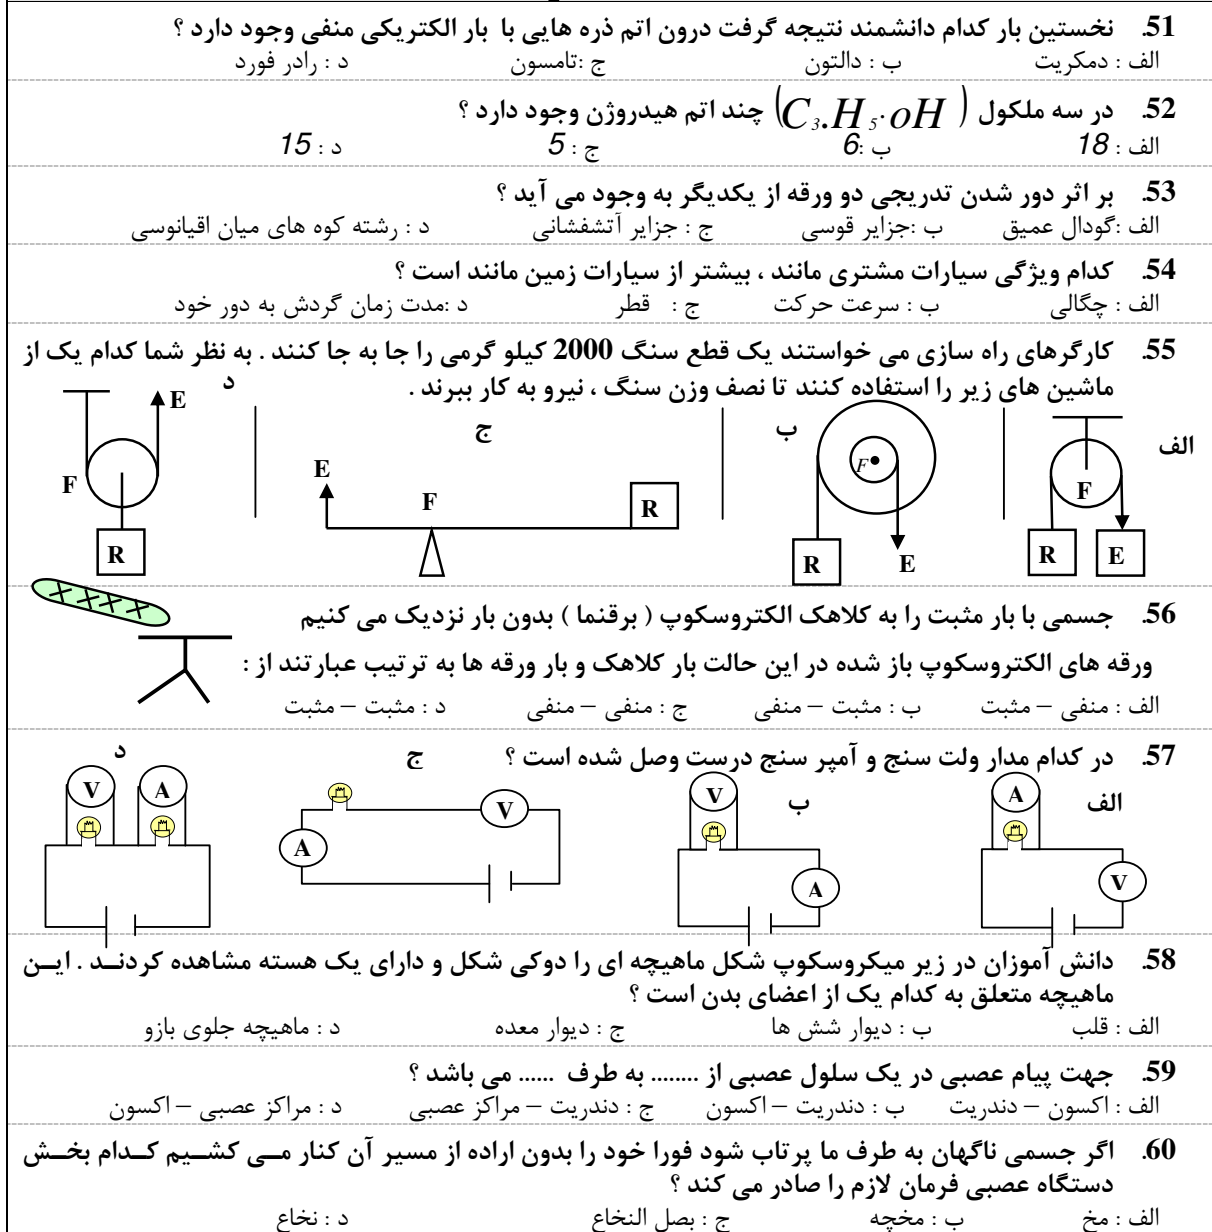 51. نخستین بار کدام دانشمند نتیجه گرفت درون اتم ذره هایی با بار الکتریکی منفی وجود دارد ؟
الف : دمکریت ب : دالتون ج :تامسون د : رادر فورد
52. در سه ملکول (C₃.H₅.oH) چند اتم هیدروژن وجود دارد ؟
الف : 18 ب :6 ج : 5 د : 15
53. بر اثر دور شدن تدریجی دو ورقه از یکدیگر به وجود می آید ؟
الف :گودال عمیق ب :جزایر قوسی ج : جزایر آتشفشانی د : رشته کوه های میان اقیانوسی
54. کدام ویژگی سیارات مشتری مانند ، بیشتر از سیارات زمین مانند است ؟
الف : چگالی ب : سرعت حرکت ج : قطر د :مدت زمان گردش به دور خود
55. کارگرهای راه سازی می خواستند یک قطع سنگ 2000 کیلو گرمی را جا به جا کنند . به نظر شما کدام یک از
ماشین های زیر را استفاده کنند تا نصف وزن سنگ ، نیرو به کار ببرند .
الف F R E
ب F R E
ج E F R
د E F R
56. جسمی با بار مثبت را به کلاهک الکتروسکوپ ( برقنما ) بدون بار نزدیک می کنیم
ورقه های الکتروسکوپ باز شده در این حالت بار کلاهک و بار ورقه ها به ترتیب عبارتند از :
الف : منفی – مثبت ب : مثبت – منفی ج : منفی – منفی د : مثبت – مثبت
57. در کدام مدار ولت سنج و آمپر سنج درست وصل شده است ؟
الف A V
ب V A
ج V A
د V A
58. دانش آموزان در زیر میکروسکوپ شکل ماهیچه ای را دوکی شکل و دارای یک هسته مشاهده کردنـد . ایـن
ماهیچه متعلق به کدام یک از اعضای بدن است ؟
الف : قلب ب : دیوار شش ها ج : دیوار معده د : ماهیچه جلوی بازو
59. جهت پیام عصبی در یک سلول عصبی از ........ به طرف ...... می باشد ؟
الف : اکسون – دندریت ب : دندریت – اکسون ج : دندریت – مراکز عصبی د : مراکز عصبی – اکسون
60. اگر جسمی ناگهان به طرف ما پرتاب شود فورا خود را بدون اراده از مسیر آن کنار مـی کشـیم کـدام بخـش
دستگاه عصبی فرمان لازم را صادر می کند ؟
الف : مخ ب : مخچه ج : بصل النخاع د : نخاع